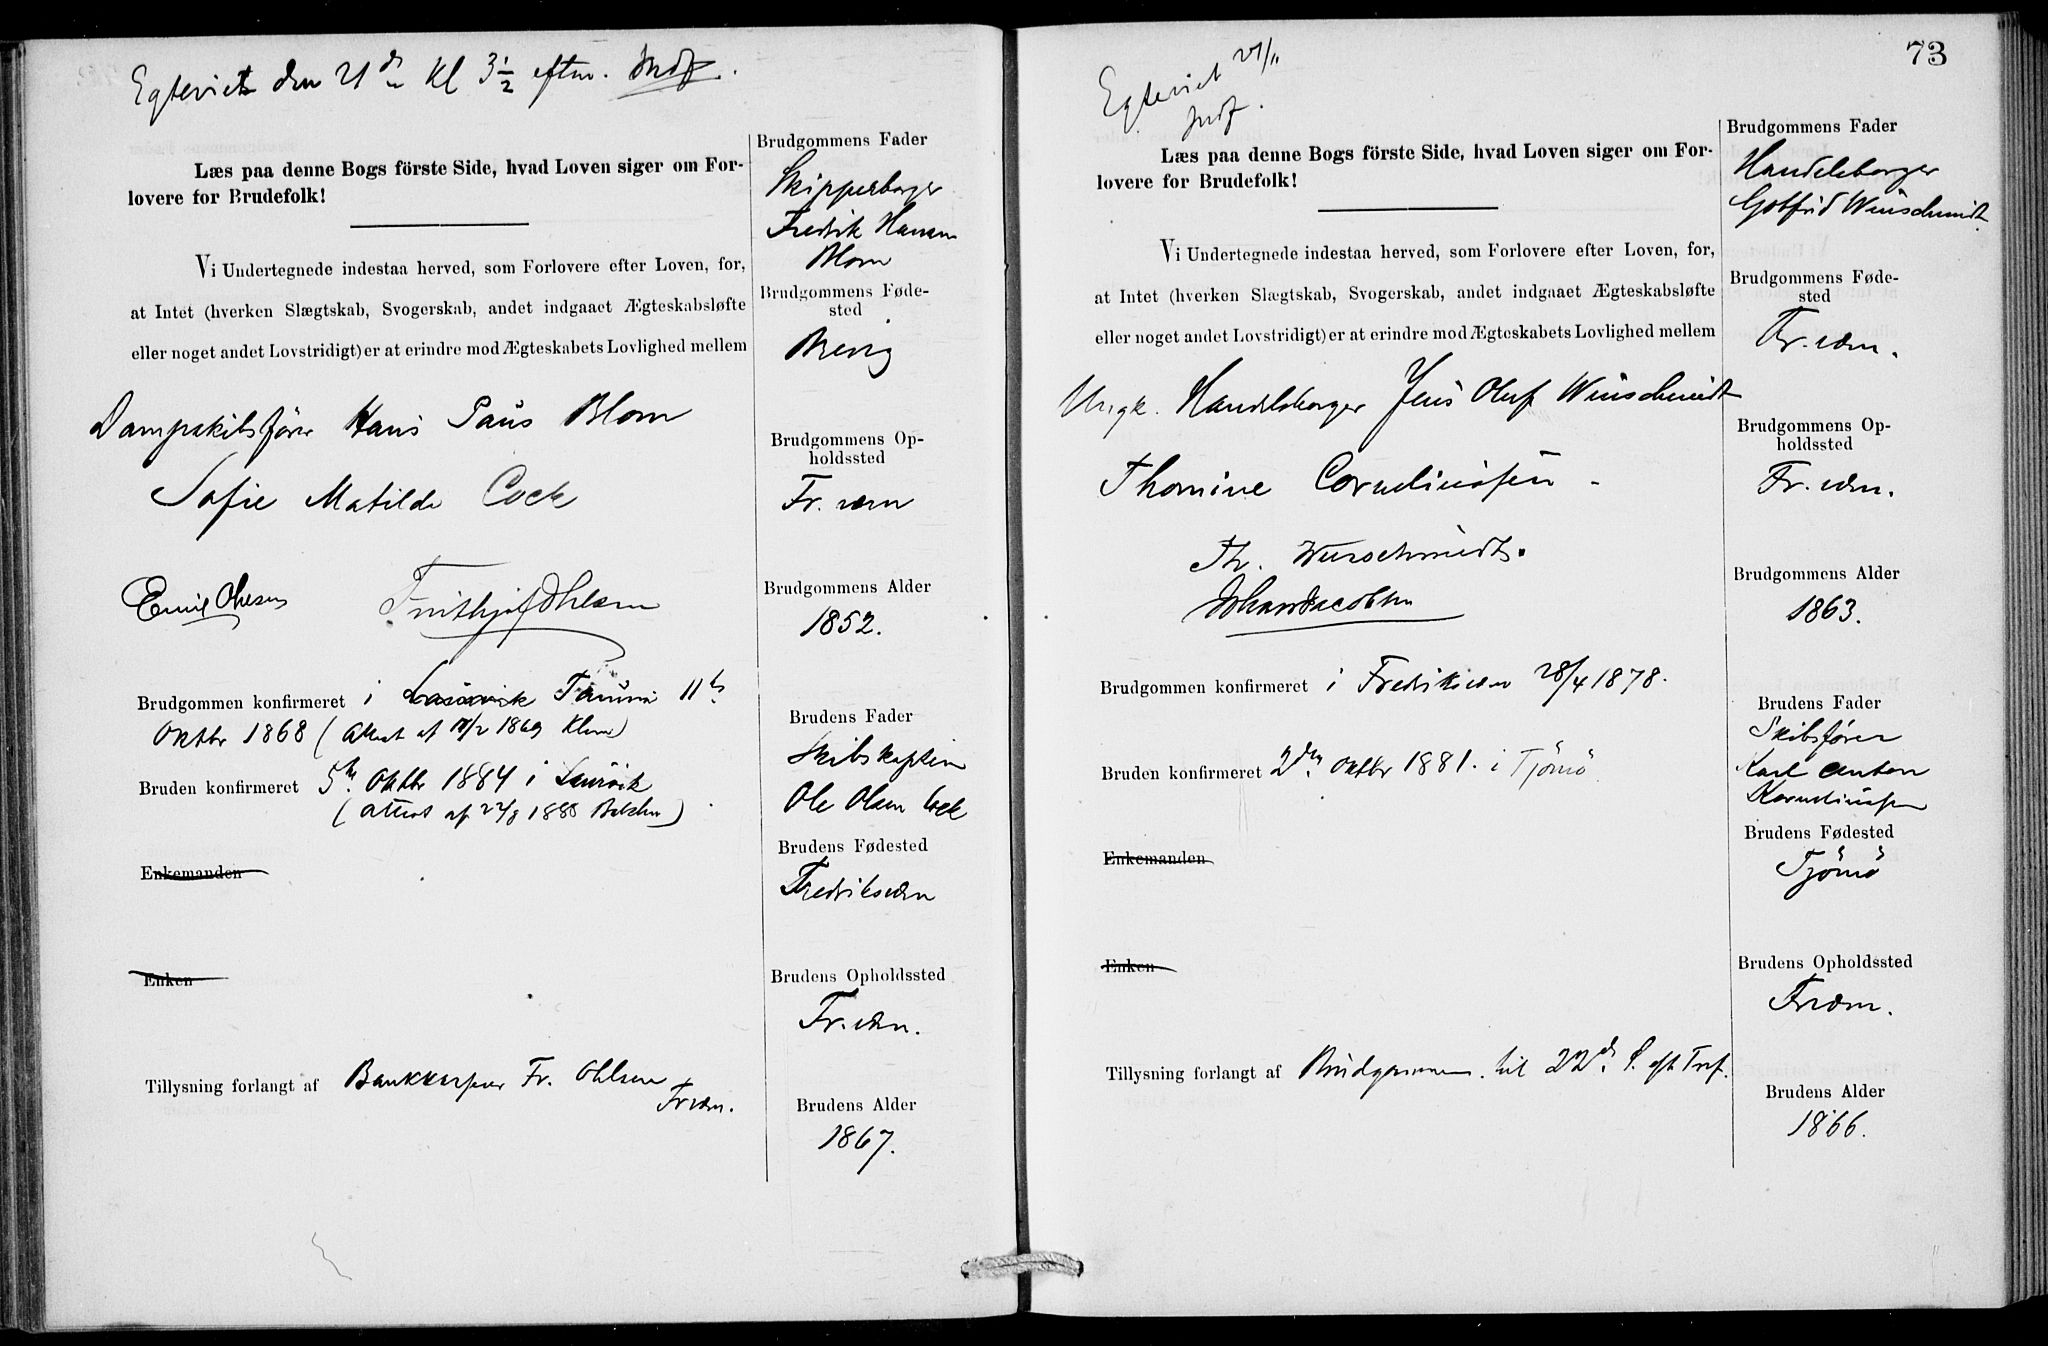 Egteviet den 21de Kl 3½ efterm. Indf.
Læs paa denne Bogs förste Side, hvad Loven siger om For-
lovere for Brudefolk!
Vi Undertegnede indestaa herved, som Forlovere efter Loven, for,
at Intet (hverken Slægtskab, Svogerskab, andet indgaaet Ægteskabsløfte
eller noget andet Lovstridigt) er at erindre mod Ægteskabets Lovlighed mellem
Dampskibsfører Hans Paus Blom
Sofie Matilde Cock
Emil Ohlsen Frithjof Ohlsen
Brudgommen konfirmeret i Laurvik 11te
Oktbr 1868 (Attest af 1869
Bruden konfirmeret 5te Oktbr 1884 i Laurvik
(Attest af 22/8 1888
Enkemanden
Enken
Tillysning forlangt af Bankkasserer Fr. Ohlsen
Fr.værn.
Brudgommens Fader
Skipperborger
Fredrik Hansen
Blom
Brudgommens Føde-
sted
Brevig
Brudgommens Op-
holdssted
Fr. værn
Brudgommens Alder
1852.
Brudens Fader
Skibskaptein
Ole Olsen Cock
Brudens Fødested
Fredriksværn
Brudens Opholdssted
Fr.værn.
Brudens Alder
1867.
73
Egteviet 21/11
Indf.
Læs paa denne Bogs förste Side, hvad Loven siger om For-
lovere for Brudefolk!
Vi Undertegnede indestaa herved, som Forlovere efter Loven, for,
at Intet (hverken Slægtskab, Svogerskab, andet indgaaet Ægteskabsløfte
eller noget andet Lovstridigt) er at erindre mod Ægteskabets Lovlighed mellem
Ungk. Handelsborger Jens Oluf Würschmidt
Thomine Corneliussen
Th. Würschmidt.
Johan Jacobsen
Brudgommen konfirmeret i Fredriksværn 28/4 1878.
Bruden konfirmeret 2den Oktbr 1881. i Tjömö
Enkemanden
Enken
Tillysning forlangt af Brudgommen til 22de S. eft Tref.
Brudgommens Fader
Handelsborger
Gotfrid Würschmidt
Brudgommens Føde-
sted
Fr.værn.
Brudgommens Op-
holdssted
Fr.værn.
Brudgommens Alder
1863.
Brudens Fader
Skibsfører
Karl Anton
Korneliussen
Brudens Fødested
Tjömö
Brudens Opholdssted
Frværn.
Brudens Alder
1866.